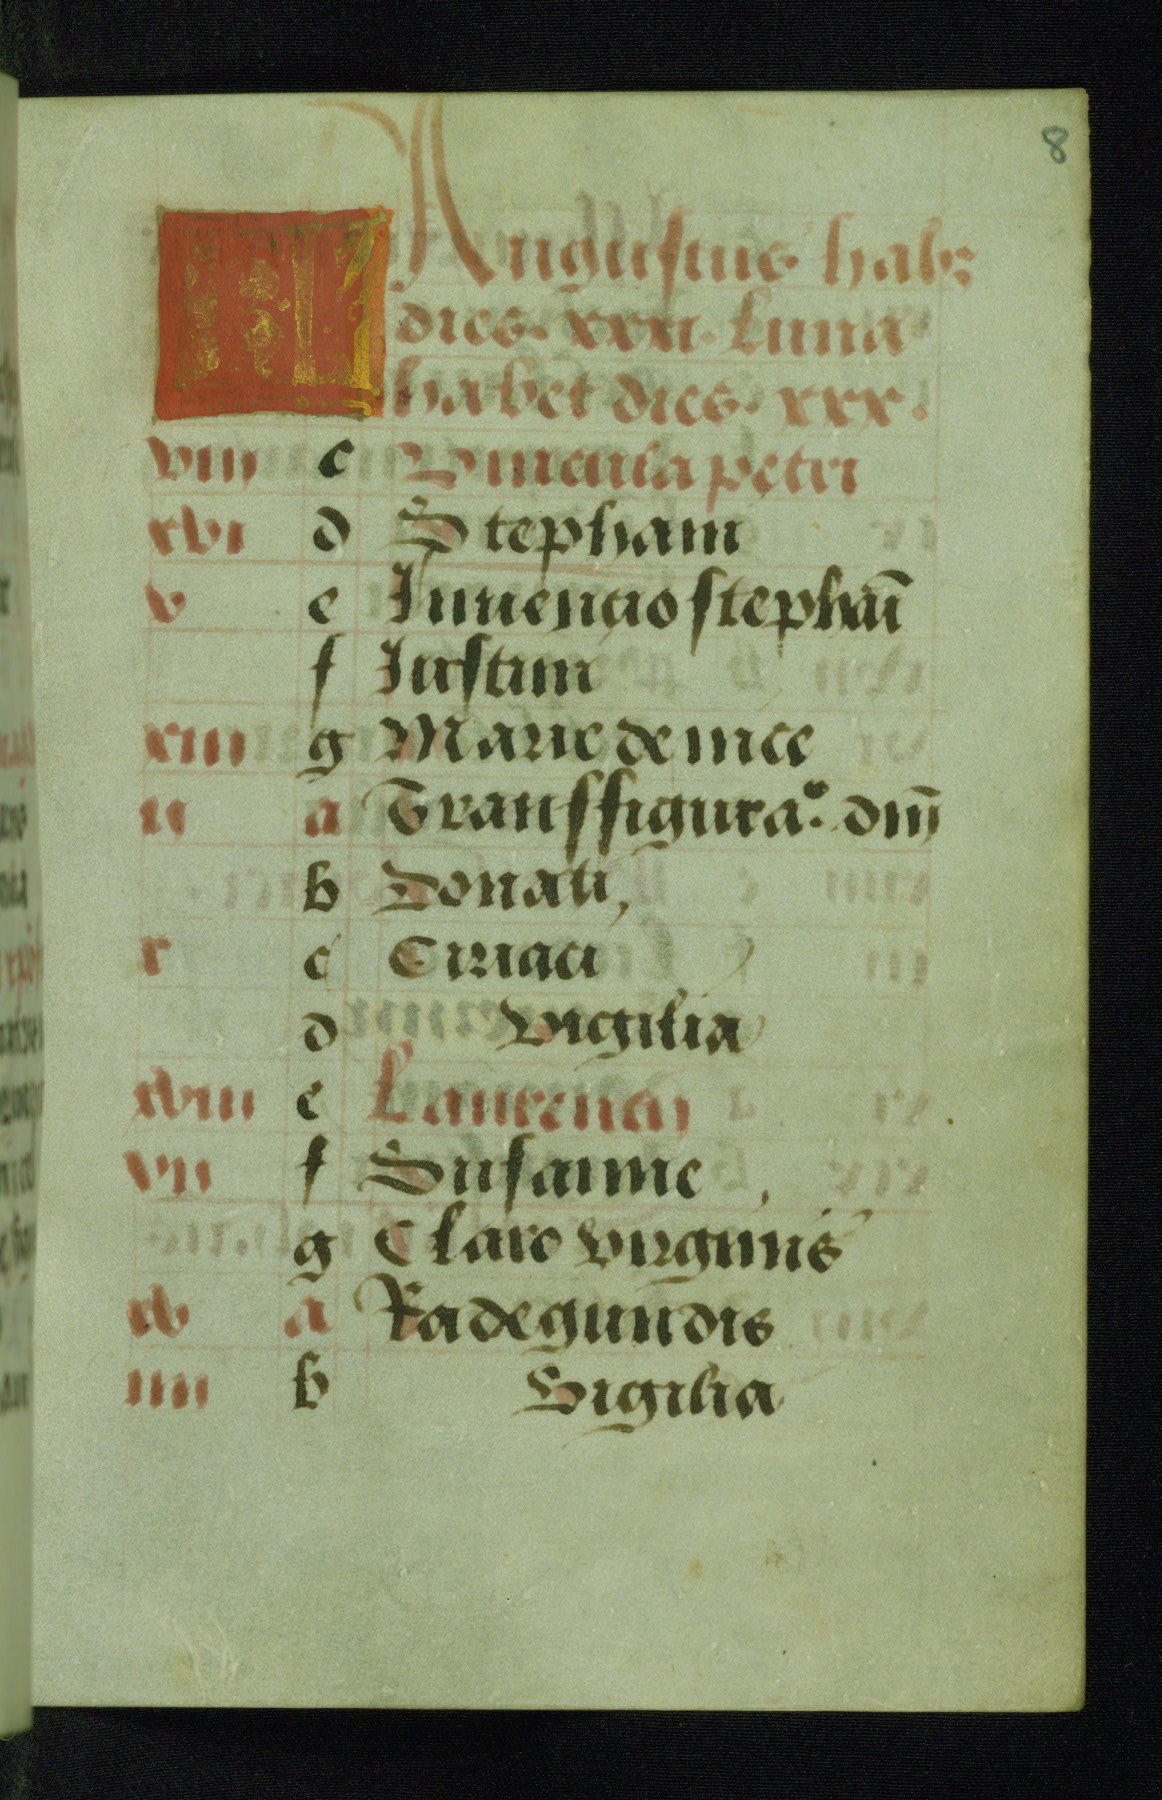 8
KL Augustus habꝫ
dies. xxxi. Luna
habet dies. xxx.
viii c Vincula petri
xvi d Stephani
v e Inuencio stephãi
f Iustini
xiii g Marie de niee
ii a Transffigura°. dñi
b Donati,
x c Ciriaci
d vigilia
xviii e Laurencij
vii f Susanne
g Clare virginis
xv a Radegundis
iiii b Vigilia